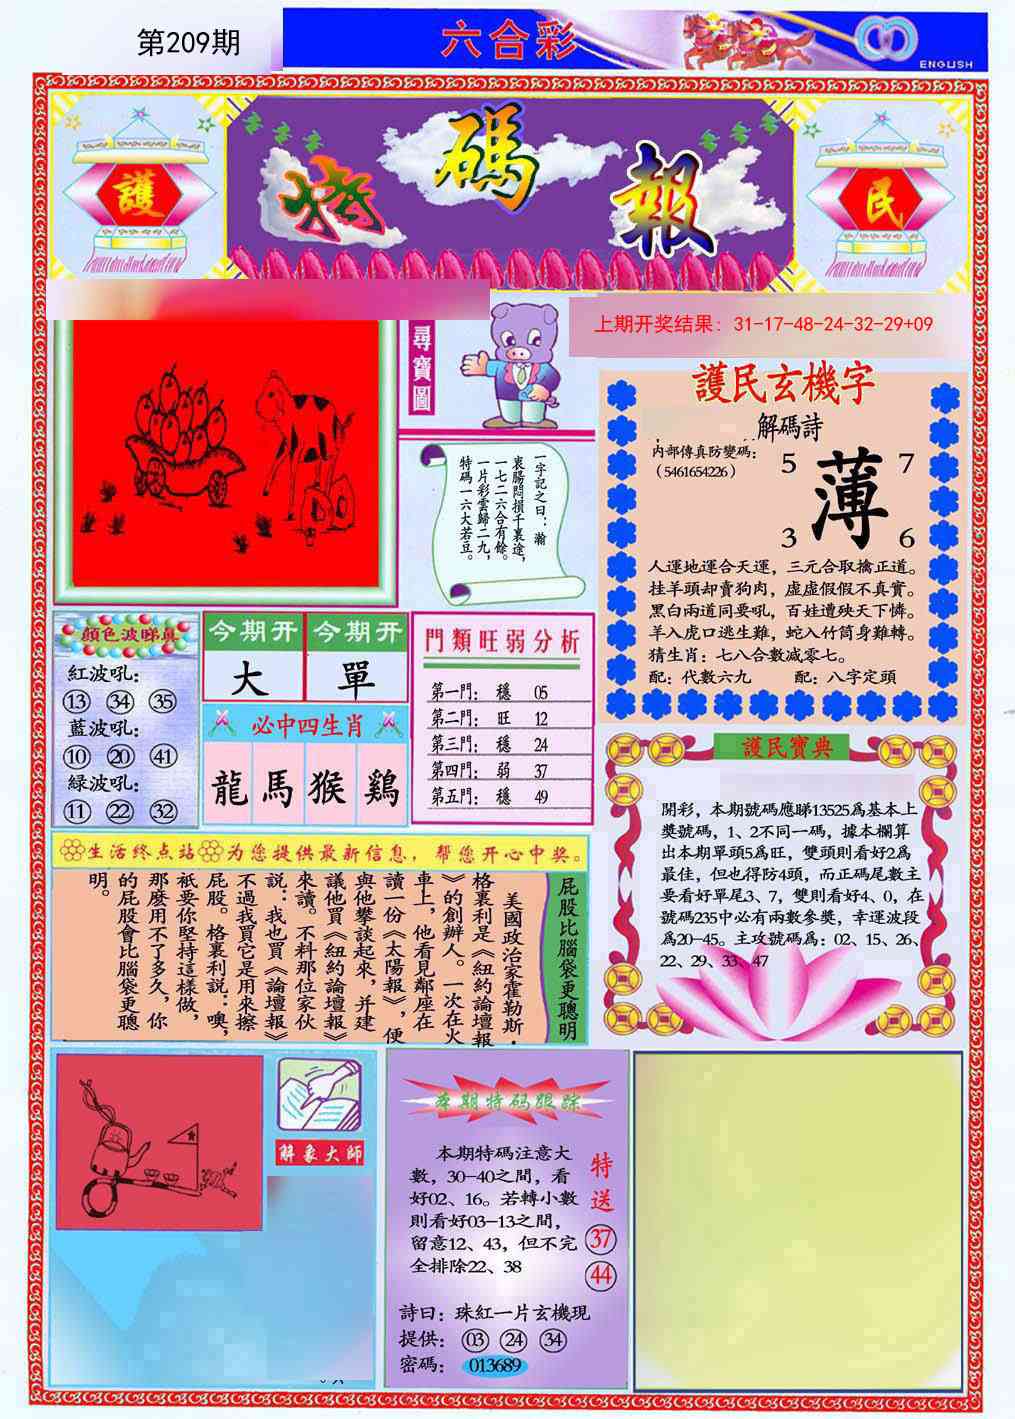 第209期
六合彩
ENGLISH
護
特碼報
民
上期开奖结果: 31-17-48-24-32-29+09
尋寶圖
一字記之曰：瀚
衷腸悶損千裏途，
一七二六合有餘。
一片彩雲歸二九，
特碼一六大若豆。
護民玄機字
解碼詩
内部傳真防變碼：
（5461654226）
5
7
薄
3
6
人運地運合天運，三元合取擒正道。
挂羊頭却賣狗肉，虚虚假假不真實。
黑白兩道同要吼，百姓遭殃天下憐。
羊入虎口逃生難，蛇入竹筒身難轉。
猜生肖：七八合數减零七。
配：代數六九
配：八字定頭
顔色波睇真
紅波吼：
13 34 35
藍波吼：
10 20 41
緑波吼：
11 22 32
今期开
大
今期开
單
必中四生肖
龍 馬 猴 鷄
門類旺弱分析
第一門： 穩 05
第二門： 旺 12
第三門： 穩 24
第四門： 弱 37
第五門： 穩 49
護民寶典
開彩，本期號碼應睇13525爲基本上
獎號碼，1、2不同一碼，據本欄算
出本期單頭5爲旺，雙頭則看好2爲
最佳，但也得防4頭，而正碼尾數主
要看好單尾3、7，雙則看好4、0，在
號碼235中必有兩數參獎，幸運波段
爲20-45。主攻號碼爲：02、15、26、
22、29、33、47
生活终点站 为您提供最新信息，帮您开心中奖。
屁股比腦袋更聰明
美國政治家霍勒斯·
格裏利是《紐約論壇報
》的創辦人。一次在火
車上，他看見鄰座在
讀一份《太陽報》，便
與他攀談起來，并建
議他買《紐約論壇報》
來讀。不料那位家伙
説：我也買《論壇報》
不過我買它是用來擦
屁股。格裏利説：噢，
衹要你堅持這樣做，
那麽用不了多久，你
的屁股會比腦袋更聰
明。
解象大師
本期特码跟踪
本期特碼注意大
數，30-40之間，看
好02、16。若轉小數
則看好03-13之間，
留意12、43，但不完
全排除22、38
特送
37
44
詩曰：珠紅一片玄機現
提供： 03 24 34
密碼： 013689